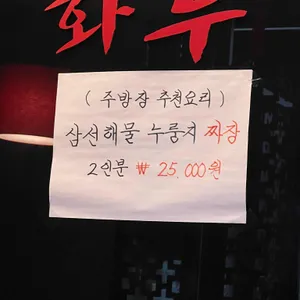 화루
( 주방장 추천요리 )
삼선해물 누룽지 짜장
2인분 ₩ 25,000원